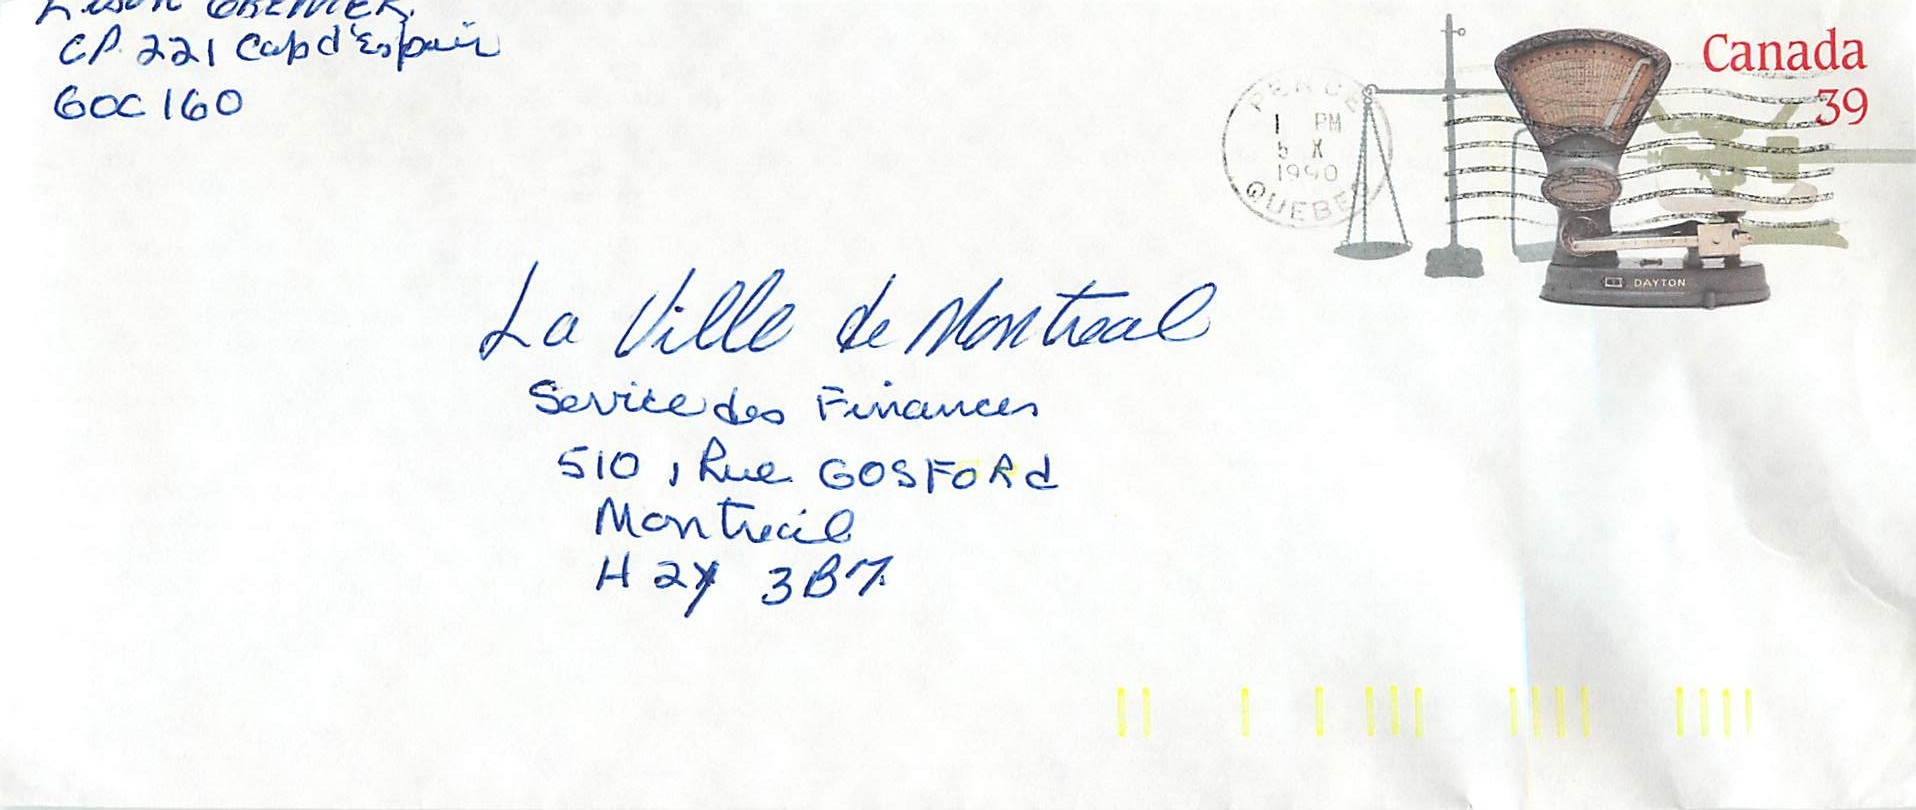 CP. 221 Cap d'Espoir
GOC 1G0
Canada
39
PERCE
1 PM
5 X
1990
QUEBEC
DAYTON
La Ville de Montreal
Service des Finances
510, Rue GOSFORd
Montreal
H2Y 3B7